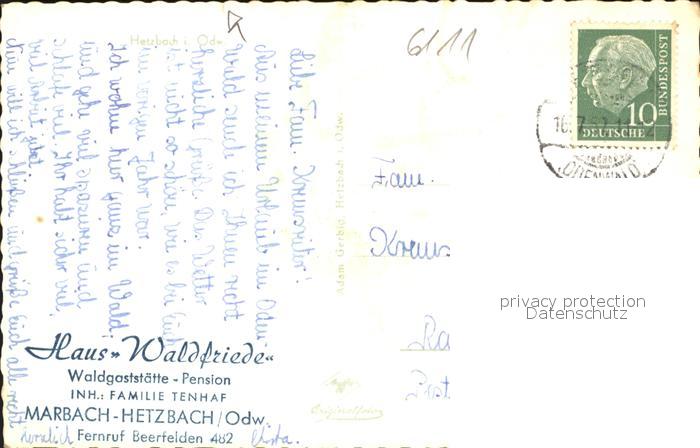 Hetzbach i. Odw.
6111
10
DEUTSCHE
BUNDESPOST
ODENWALD
Liebe Fam. Kreusreiter!
Aus meinem Urlaub im Oden-
wald sende ich Ihnen recht
herzliche Grüße. Das Wetter
ist nicht so schön, wie es bei Euch
im vorigen Jahr war.
Ich wohne hier ganz im Wald
und gehe viel spazieren und
schlafe viel. Ihr habt sicher viel,
viel Arbeit jetzt.
Nun will ich schließen und grüße Euch alle recht
herzlich
Christa.
Adam Gerbig, Hetzbach i. Odw.
Fam.
Kreus
Ra
Post
privacy protection
Datenschutz
Haus »Waldfriede«
Waldgaststätte - Pension
INH.: FAMILIE TENHAF
MARBACH-HETZBACH/Odw.
Fernruf Beerfelden 482
Originalfoto